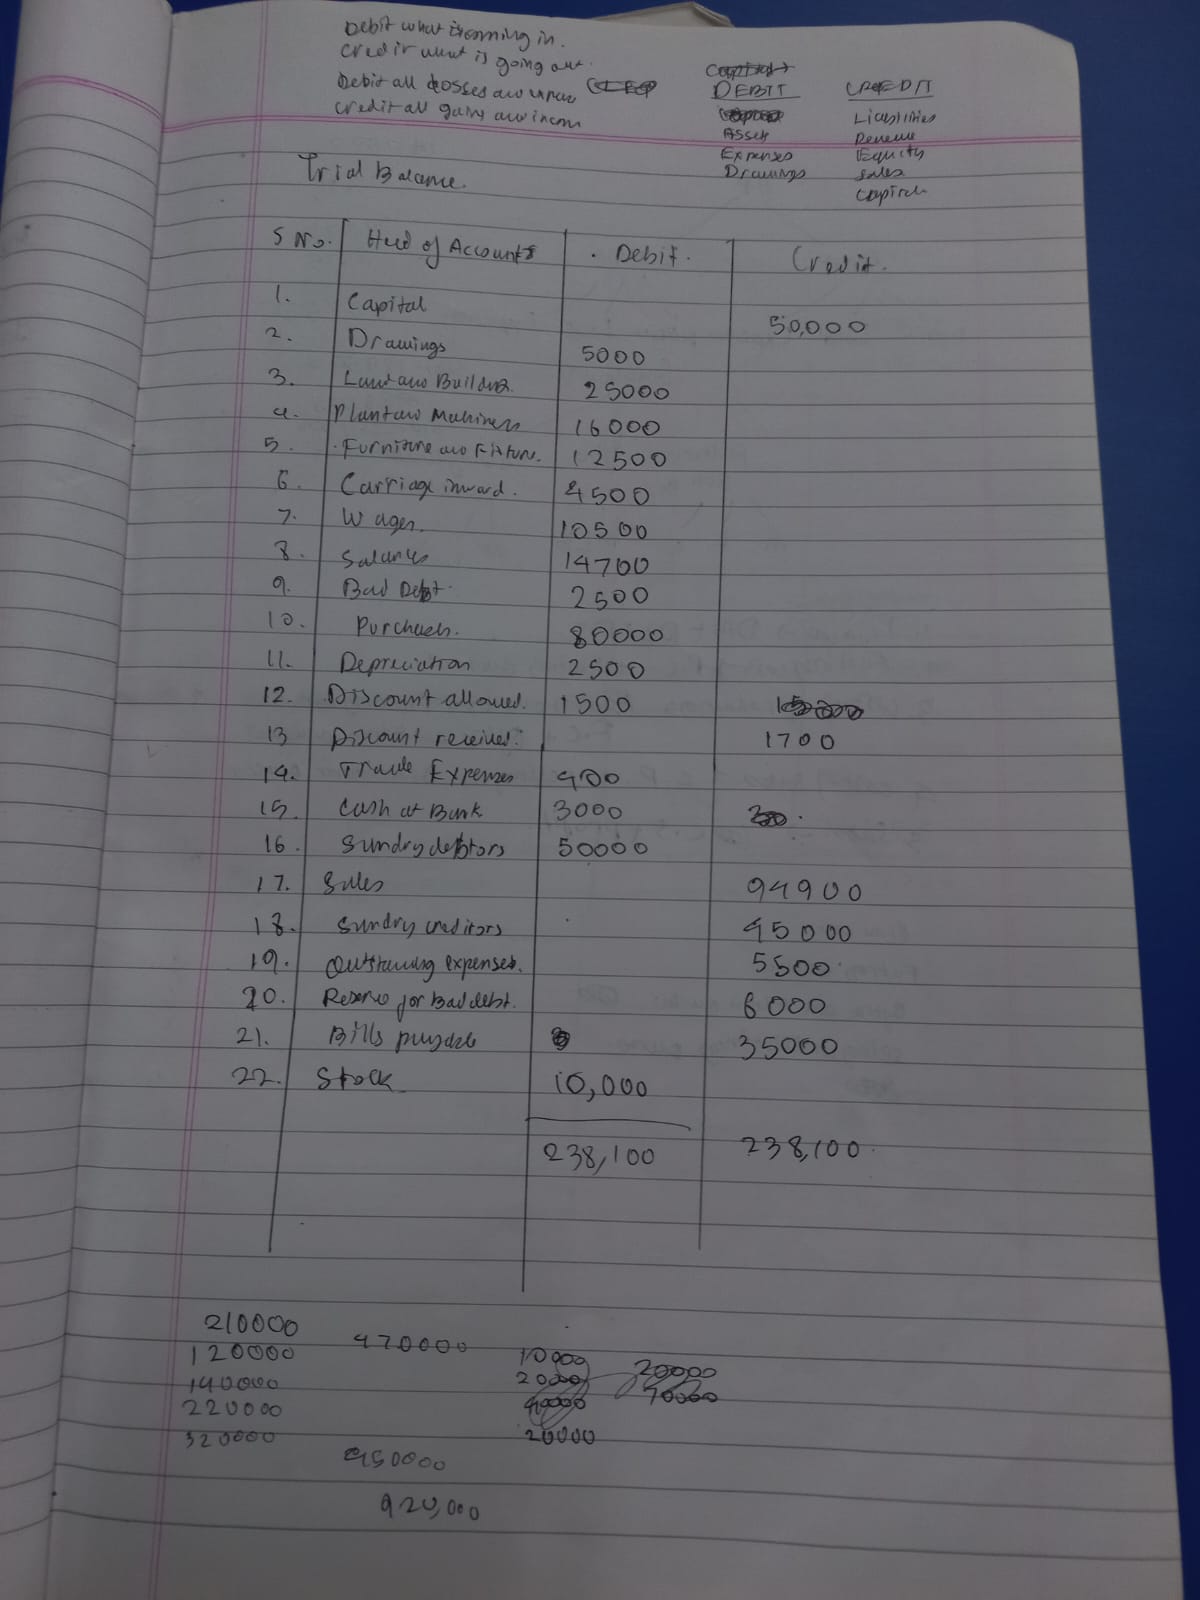 Debit what is coming in.
Credit what is going out.
Debit all losses and expense
credit all gains and income
DEBIT CREDIT
Liabilities
Assets Revenue
Expenses Equity
Drawings Sales
Capital
Trial Balance.
S No. Head of Accounts Debit. Credit.
1. Capital 50,000
2. Drawings 5000
3. Land and Building 25000
4. Plant and Machinery 16000
5. Furniture and Fixture. 12500
6. Carriage inward. 4500
7. Wages. 10500
8. Salaries 14700
9. Bad Debt. 2500
10. Purchases. 80000
11. Depreciation 2500
12. Discount allowed. 1500
13 Discount received. 1700
14. Trade Expenses 400
15. Cash at Bank 3000
16. Sundry debtors 50000
17. Sales 94900
18. Sundry creditors 45000
19. Outstanding expenses. 5500
20. Reserve for Bad debt. 6000
21. Bills payable 35000
22. Stock 10,000
238,100 238,100.
210000
470000
120000 10000 20000
140000 20000 70000
220000 40000
320000 20000
450000
920,000